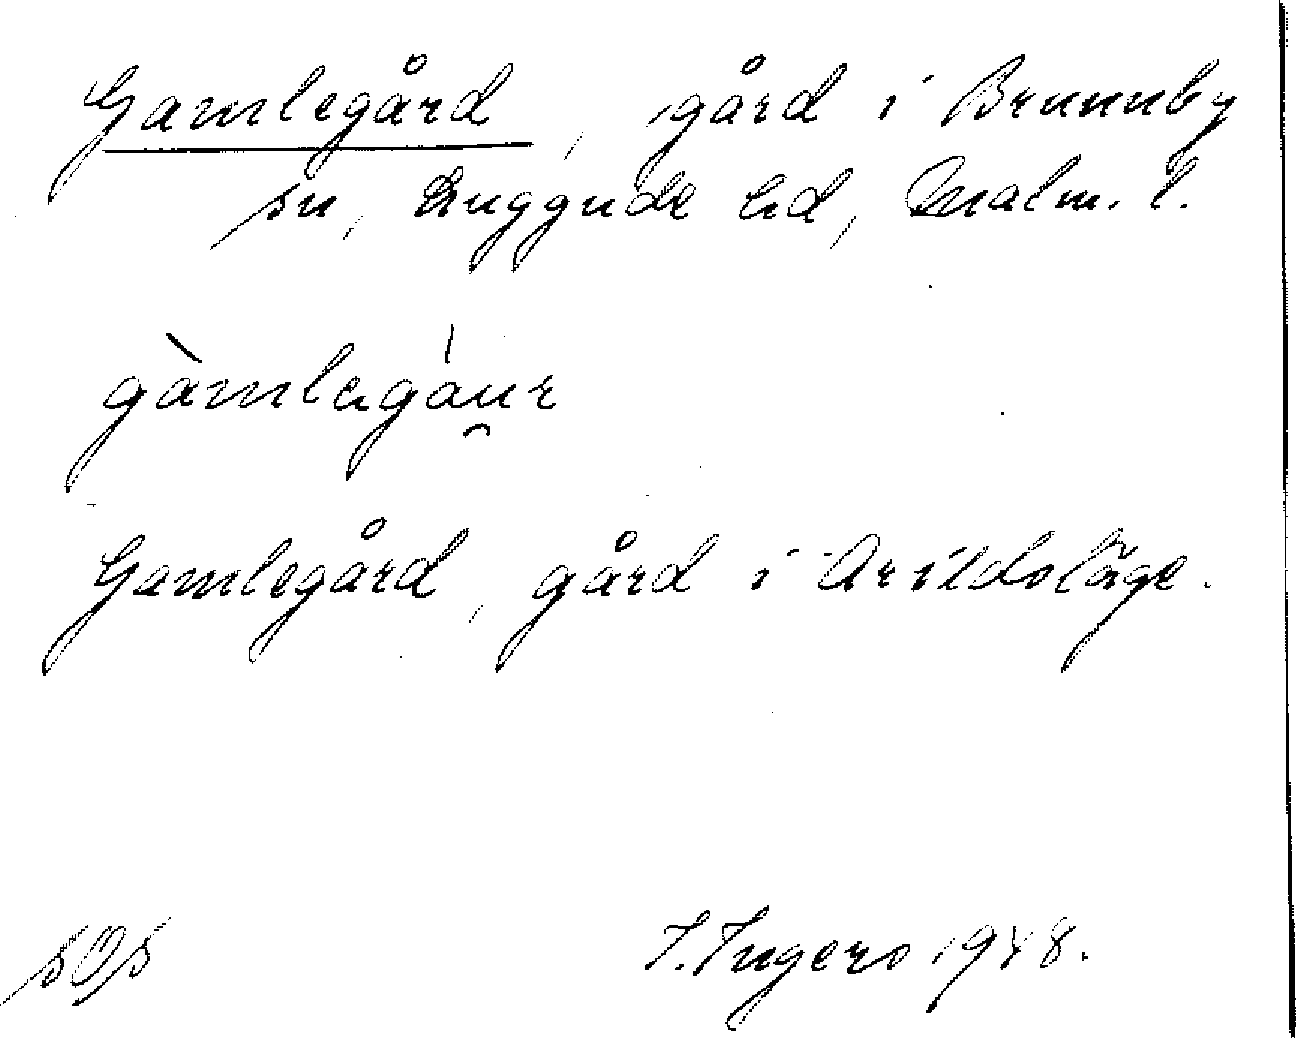 Gamlegård, gård i Brunnby
sn, Luggude hd, Malm. l.
gàmlagáu̯r
Gamlegård, gård i Arildsläge.
I. Ingers 1948.